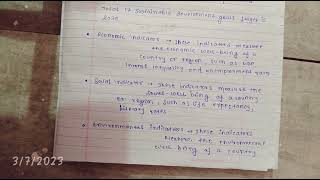 Total 17 sustainable development goals target is
2030
• Economic indicators → these indicators measure
the economic well-being of a
country or region, such as GDP
interest inequality and unemployment rates
• Social indicator → these indicators measure the
social-well being of a country
or region, such as life expectancy,
literacy rates
• Environmental indicators → these indicators
measure the environmental
well being of a country
3/7/2023